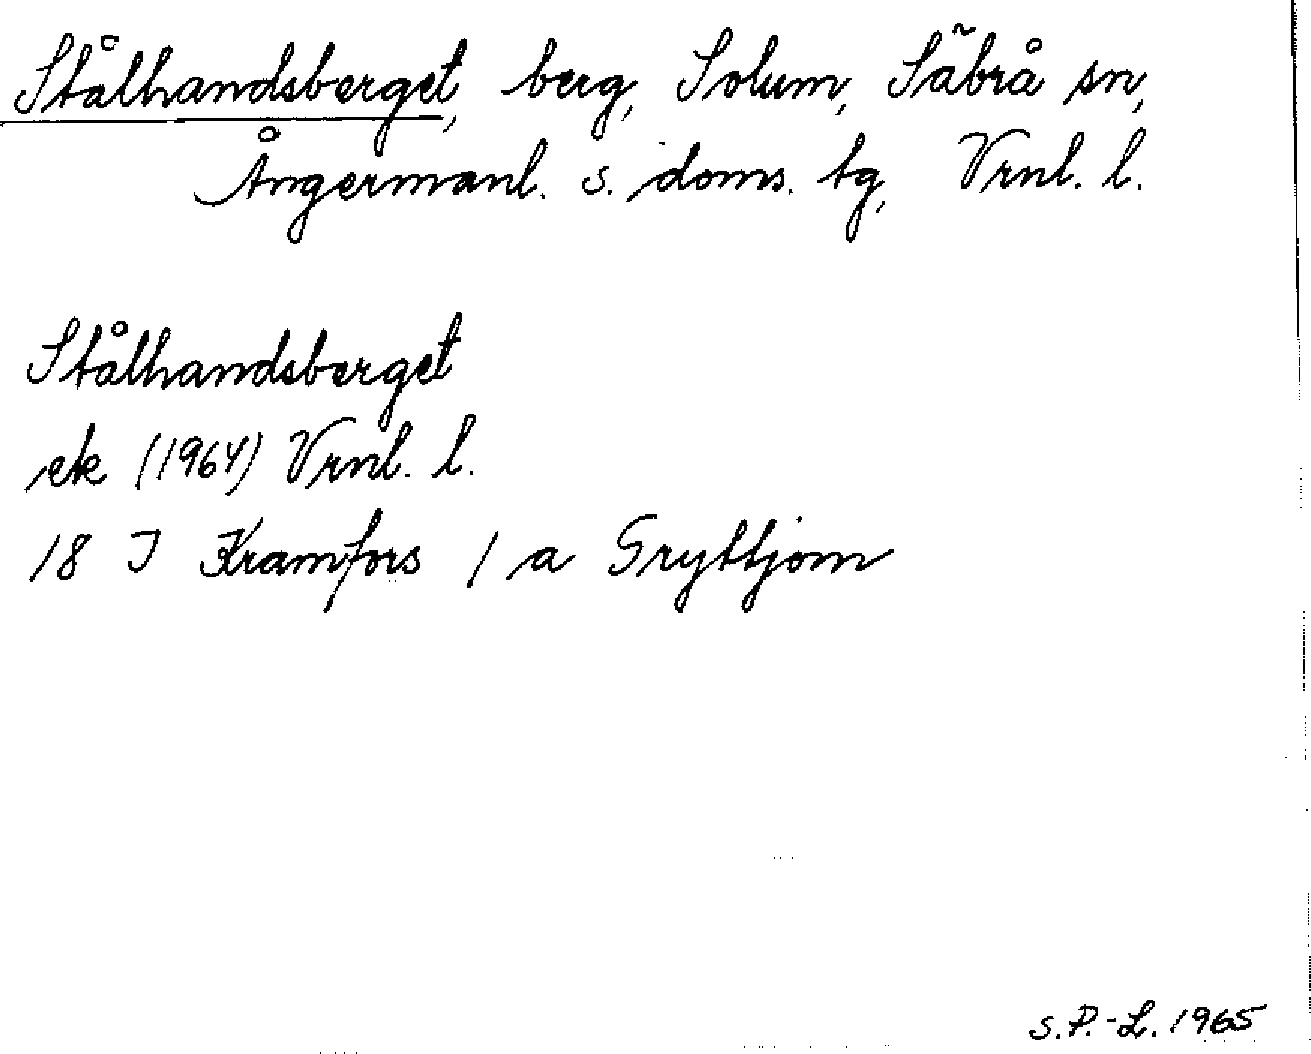 Stålhandsberget, berg, Solum, Säbrå sn,
Ångermanl. s. doms. tg, Vrnl. l.
Stålhandsberget
ek (1964) Vrnl. l.
18 I Kramfors 1 a Gryttjom
S.P.-L. 1965